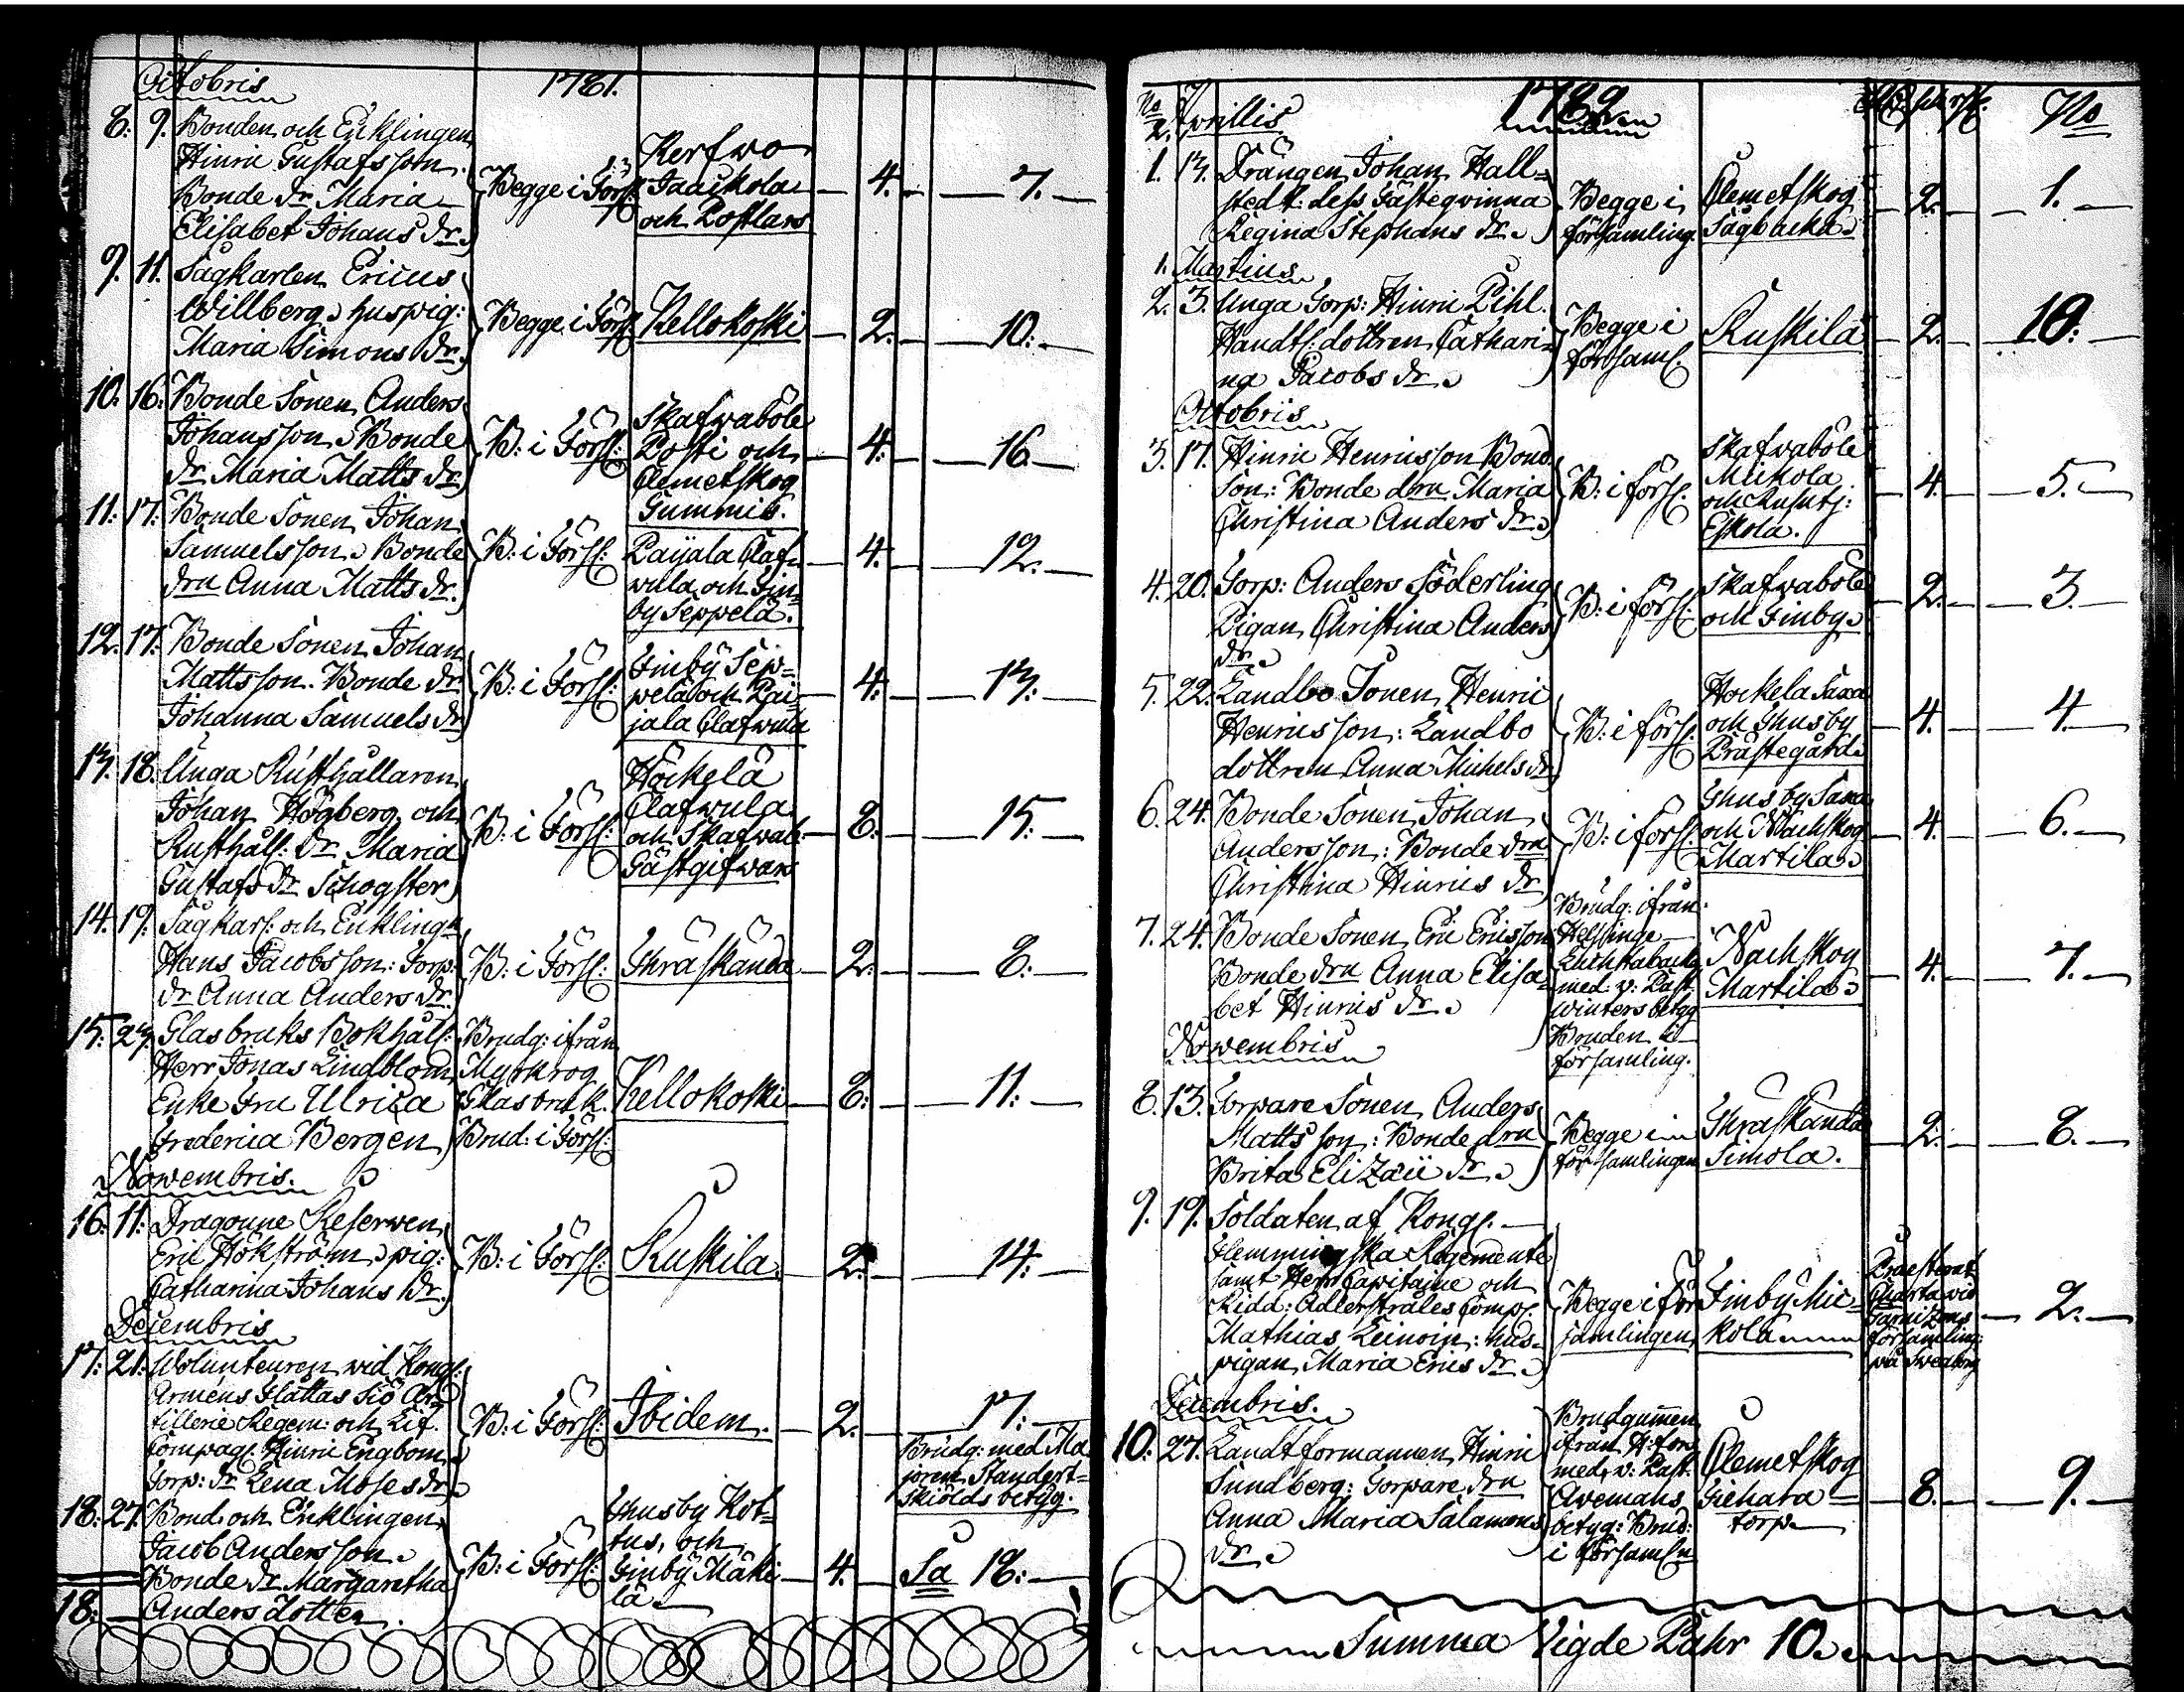 Octobris 1781.
8. 9. Bonden och Enklingen
Hinric Gustafsson.
Bonde dr Maria
Elisabet Johans dr.
Begge i Förs:
Kerfwo
Jaackola
och Postlars
4. 7.
9. 11. Sågkarlen Ericus
Willberg, huspig:
Maria Simons dr.
Begge i Förs:
Kellokoski
2. 10.
10. 16. Bonde Sonen Anders
Johansson, Bonde
dr Maria Matts dr
B: i Förs:
Skafwaböle
Posti och
Clemetskog
Gummis.
4. 16.
11. 17. Bonde Sonen Johan
Samuelsson, Bonde
drn Anna Matts dr.
B: i Förs:
Paijala Claf-
wula och Fin-
by Seppelä.
4. 12.
12. 17. Bonde Sonen Johan
Mattsson. Bonde dr
Johanna Samuels dr
B: i Förs:
Finby Sep-
pelä och Pai-
jala Clafwula
4. 13.
13. 18. Unga Rusthållaren
Johan Högberg och
Rusthåll: dr Maria
Gustafs dr Schogster
B: i Förs:
Höckelä
Clafwula
och Skafwab:
Gästgifwars
8. 15.
14. 19. Sågkarl: och Enkling:
Hans Jacobsson: Torp:
dr Anna Anders dr.
B: i Förs:
Thräskända
2. 8.
15. 27. Glasbruks Bokhåll:
Herr Jonas Lindblom,
Enke Fru Ulrica
Fredericia Bergen
Brudg: ifrån
Myrkrog
Glasbruk.
Brud: i Förs:
Kellokoski
8. 11.
Nowembris.
16. 11. Dragoune Reserwen
Eric Hökström, pig:
Catharina Johans dr.
B: i Förs:
Ruskila.
2. 14.
Decembris
17. 21. Wolunteuren wid Kongl:
Armens Flattas Siö Ar-
tillerie Regem: och Lif.
Compag: Hinric Engbom
Torp: dr Lena Moses dr.
B: i Förs:
Ibidem.
2. 17.
Brudg: med Ma
joren Standert-
skiölds betyg.
18. 27. Bond. och Enklingen
Jacob Andersson.
Bonde dr Margaretha
Anders dotter.
B: i Förs:
Thusby Kot-
tus, och
Finby Mäki-
lä
4. Sa 18.
18.
No 1782 No
Aprillis
1. 13. Drängen Johan Hall-
stedt: dess Fästeqvinna
Regina Stephans dr.
Begge i
församling.
Clemetskog
Sågbacka
2. 1.
Martius
2. 3. Unga Torp: Hinric Pihl.
Handtl: dottren Cathari-
na Jacobs dr.
Begge i
församl.
Ruskila
2. 10.
Octobris
3. 17. Hinric Henricsson Bond
Son: Bonde drn Maria
Christina Anders dr.
B: i förs:
Skafwaböle
Mickola
och Rusutj:
Eskola.
4. 5.
4. 20. Torp: Anders Söderling
Pigan Christina Anders
dr.
B: i förs:
Skafwaböle
och Finby.
2. 3.
5. 22. Landbo Sonen Henric
Henricsson: Landbo
dottren Anna Michels dr
B: i förs:
Höckelä Saxa
och Thusby
Prästegård.
4. 4.
6. 24. Bonde Sonen Johan
Andersson: Bonde drn
Christina Hinrics dr
B: i förs:
Thusby Saxa
och Nachskog
Martila.
4. 6.
7. 24. Bonde Sonen Eric Ericsson
Bonde drn Anna Elisa-
bet Hinrics dr.
Brudg: ifrån
Helssinge
med v: Past.
Winters betyg
Bruden i
församling.
Nachskog
Martila
4. 7.
Nowembris
8. 13. Torpare Sonen Anders
Matts son: Bonde drn
Brita Elizæi dr.
Begge i
församlingen
Thräskända
Simola.
2. 8.
9. 19. Soldaten af Kongl.
Flemmingska Regemente
samt Herr Capitaine och
Ridd: Adlerstråles Comp:
Mathias Leinoin: hus-
pigan Maria Erics dr.
Begge i för
samlingen
Finby Mic-
kola
Præsterat
Charta wid
Garnizons
församling:
på Sweaborg
2.
Decembris.
10. 27. Landtformannen Hinric
Sundberg: Torpare drn
Anna Maria Salamons
dr.
Brudgumen
ifrån H:fors
med v: Past.
Avemans
betyg: Brud:
i församl:n
Clemetskog
Giehara
torp
8. 9.
Summa Vigde Pahr 10.